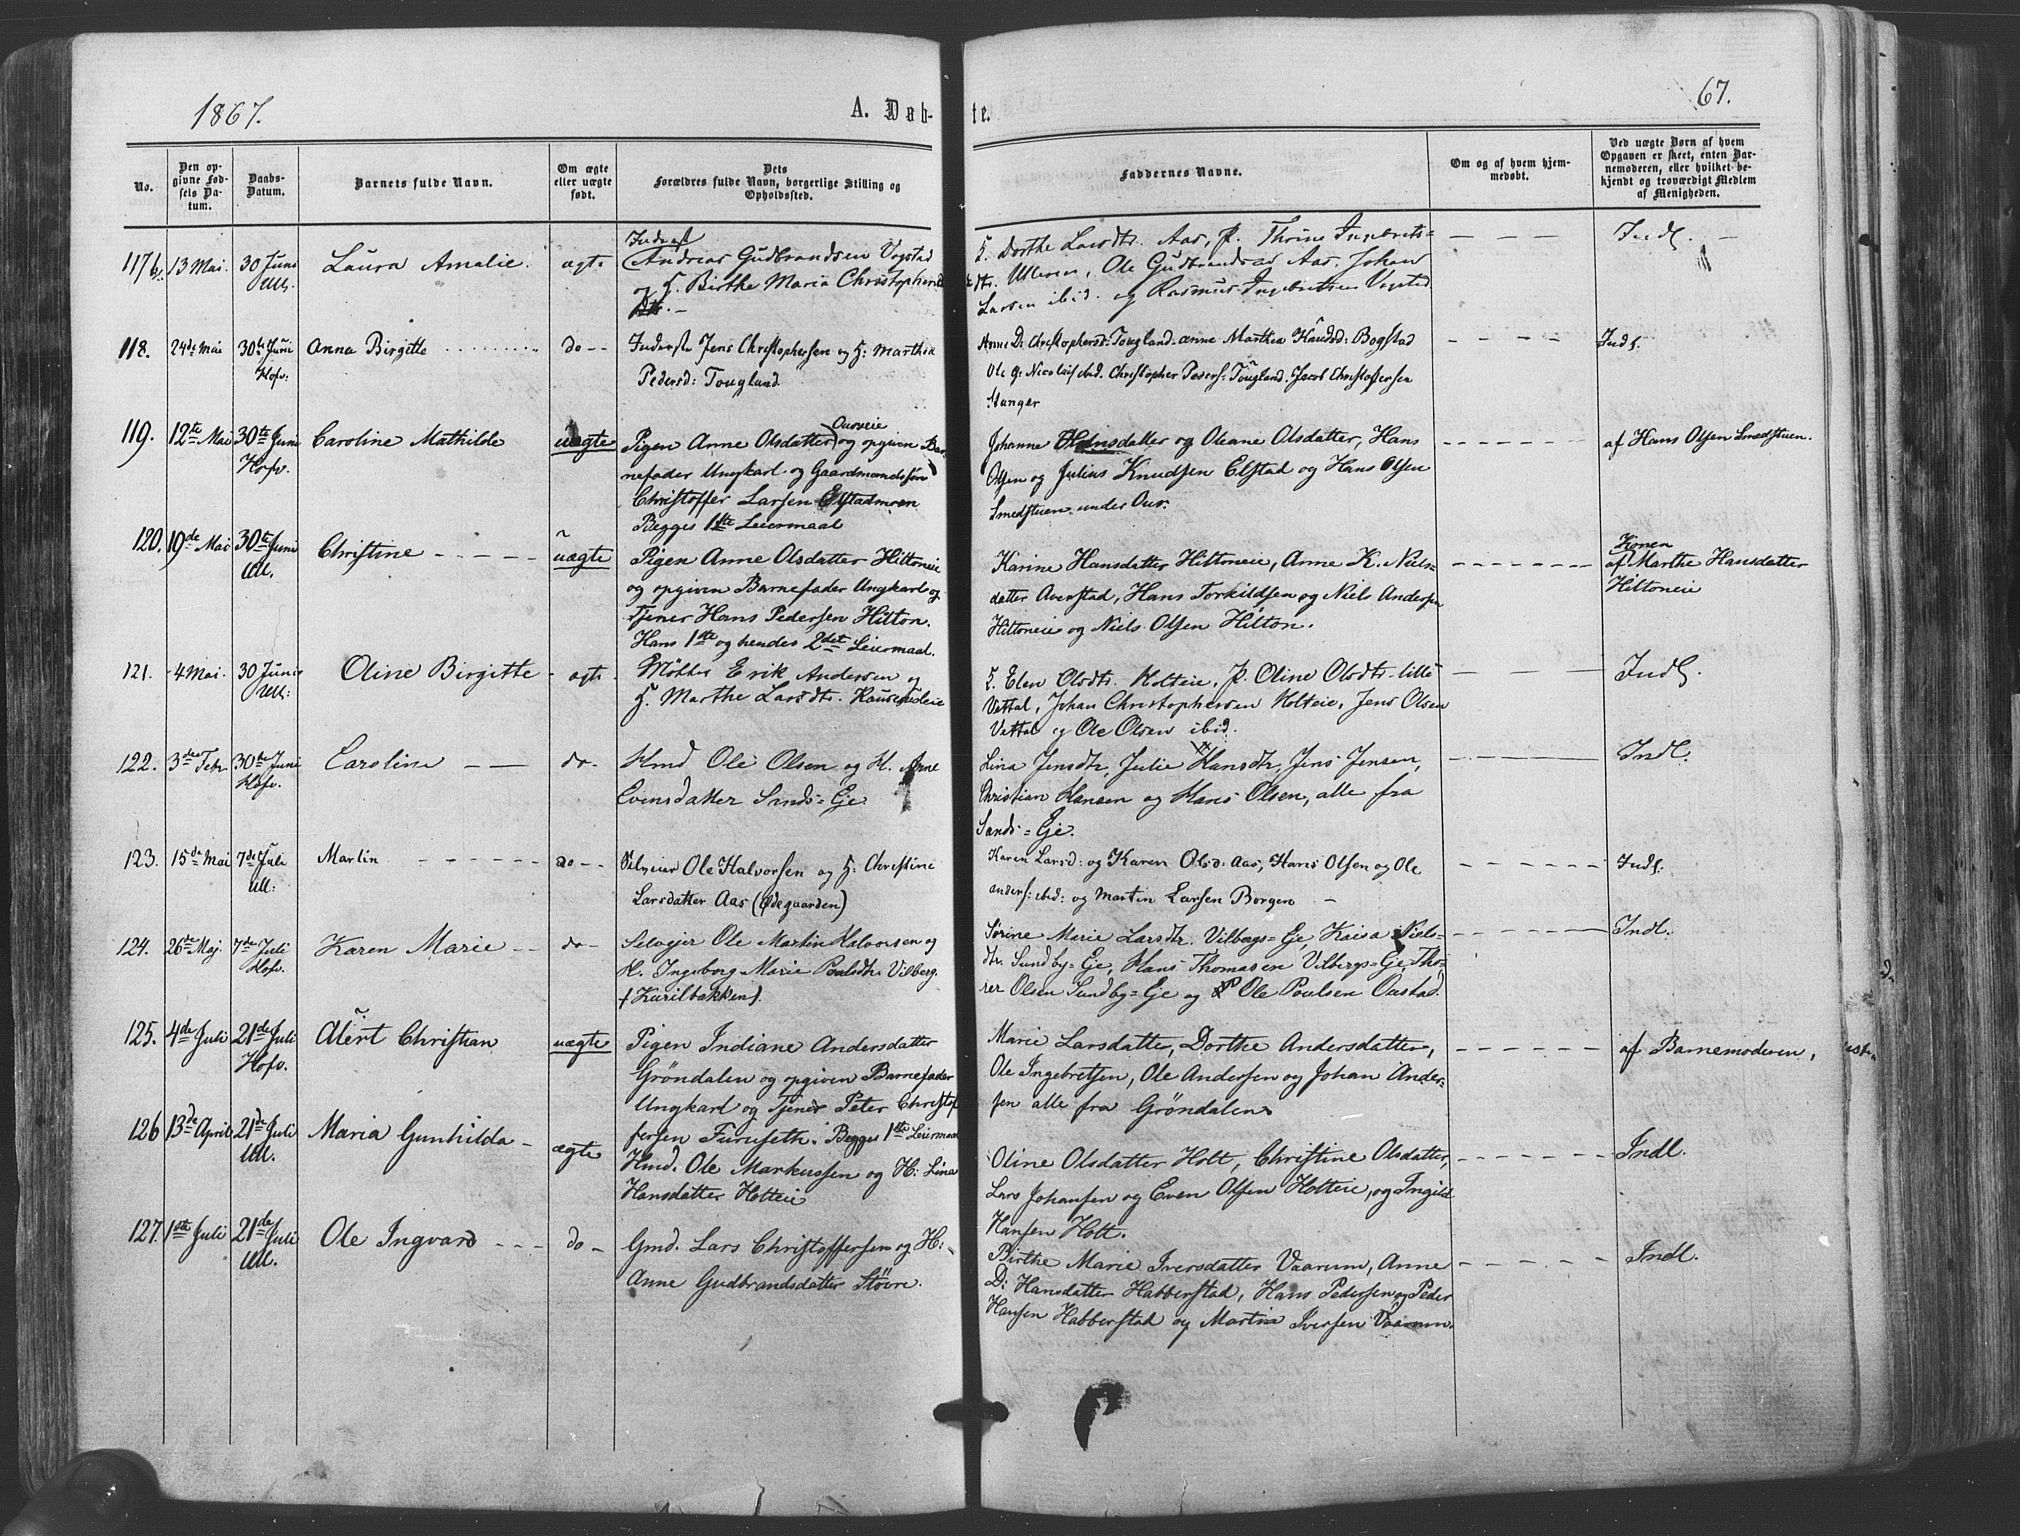 1867.
A. Døb-
te.
67.
No.
Den op-
givne Fød-
sels Da-
tum.
Daabs-
Datum.
Barnets fulde Navn.
Om ægte
eller uægte
født.
Dets
Forældres fulde Navn, borgerlige Stilling og
Opholdssted.
Faddernes Navne.
Om og af hvem hjem-
medøbt.
Ved uægte Børn af hvem
Opgaven er skeet, enten Bar-
nemoderen, eller hvilket be-
kjendt og troværdigt Medlem
af Menigheden.
117 13 Mai. 30 Juni
Ull.
Laura Amalie. ægte
Inderst
Andreas Gudbrandsen Vogstad
og H. Birthe Maria Christophers
Dtr. -
Dorthe Larsdtr. Aas, P. Thrine Ingebrets-
dtr. Ulleren, Ole Gudbrandsen Aas, Johan
Larsen ibid. og Rasmus Ingebretsen Vogstad
Indl.
118. 24de Mai 30te Juni
Hofv:
Anna Birgitte do -
Inderste Jens Christophersen og H: Marthea
Pedersd: Tougland
Anne D: Christophersd: Tougland. Anne Marthea Knudsd: Bogstad
Ole G: Nicolais ibd. Christopher Peders: Tougland. Jacob Christoffersen
Stanger
Indl.
119. 12te Mai 30te Juni
Hofv.
Caroline Mathilde uægte
Pigen Anne Olsdatter Oursveie og opgiven Bar-
nefader Ungkarl og Gaardmandssøn
Christoffer Larsen Elstadmoen
Begges 1ste Leiermaal
Johanne Hansdatter og Oleane Olsdatter, Hans
Olsen og Julius Knudsen Elstad og Hans Olsen
Smedstuen under Our.
af Hans Olsen Smedstuen.
120. 19de Mai 30te Juni
Ull.
Christine uægte
Pigen Anne Olsdatter Hiltoneie
og opgiven Barnefader Ungkarl og
Tjener Hans Pedersen Hilton.
Hans 1ste og hendes 2det Leiermaal.
Karine Hansdatter Hiltoneie, Anne K. Niels-
datter Averstad, Hans Torkildsen og Niels Andersen
Hiltoneie og Niels Olsen Hilton.
Konen
af Marthe Hansdatter
Hiltoneie
121. 4 Mai. 30 Juni
Ull:
Oline Birgitte - ægte
Møller Erik Andersen og
H. Marthe Larsdtr.
Elen Olsdtr. Holteie, P. Oline Olsdtr. lille
Vettal, Johan Christophersen Holteie, Jens Olsen
Vettal og Ole Olsen ibid.
Indl.
122. 3de Febr 30te Juni
Hofv.
Caroline do -
Hmd Ole Olsen og H. Anne
Evensdatter Sands=Eje
Lina Jensdtr, Julie Hansdtr, Jens Jensen,
Christian Hansen og Hans Olsen, alle fra
Sands=Eje.
Indl.
123. 15de Mai 7de Juli
Ull:
Martin do -
Selveier Ole Halvorsen og H: Christine
Larsdatter Aas (Ødegaarden)
Karen Larsd: og Karen Olsd: Aas, Hans Olsen og Ole
Anders: ibid: og Martin Larsen Borgen -
Indl:
124. 26de Maj. 7de Juli
Hofv.
Karen Marie do -
Selvejer Ole Martin Halvorsen og
H. Ingeborg Marie Poulsdtr. Vilberg.
(Karilbakken).
Sörine Marie Larsdtr. Vilbergs=Eje, Kaisa Niels-
dtr. Sundby=Eje, Hans Thomasen Vilbergs=Eje, Tho-
rer Olsen Sundby=Eje og Ole Poulsen Oustad.
Indl.
125. 4de Juli 21de Juli
Hofv.
Alert Christian uægte
Pigen Indiane Andersdatter
Gröndalen og opgiven Barnefader
Ungkarl og Tjener Peter Christof-
fersen Furuseth. Begges 1ste Leiermaal
Marie Larsdatter, Dorthe Andersdatter,
Ole Ingebretsen, Ole Andersen og Johan Ander-
sen alle fra Gröndalen
af Barnemoderen,
126 13de April 21de Juli
Ull.
Maria Gunhilda - ægte
Hmd. Ole Markussen og H: Lina
Hansdatter Holteie
Oline Olsdatter Holt, Christine Olsdatter,
Lars Johansen og Even Olsen Holteie, og Ingild
Hansen Holt.
Indl.
127. 1ste Juli 21de Juli
Ull.
Ole Ingvard do -
Gmd. Lars Christoffersen og H:
Anne Gudbrandsdatter Stövre.
Birthe Marie Iversdatter Vaarum, Anne
D: Hansdatter Habberstad, Hans Pedersen og Peder
Hansen Habberstad og Martin Iversen Vaarum.
Indl.